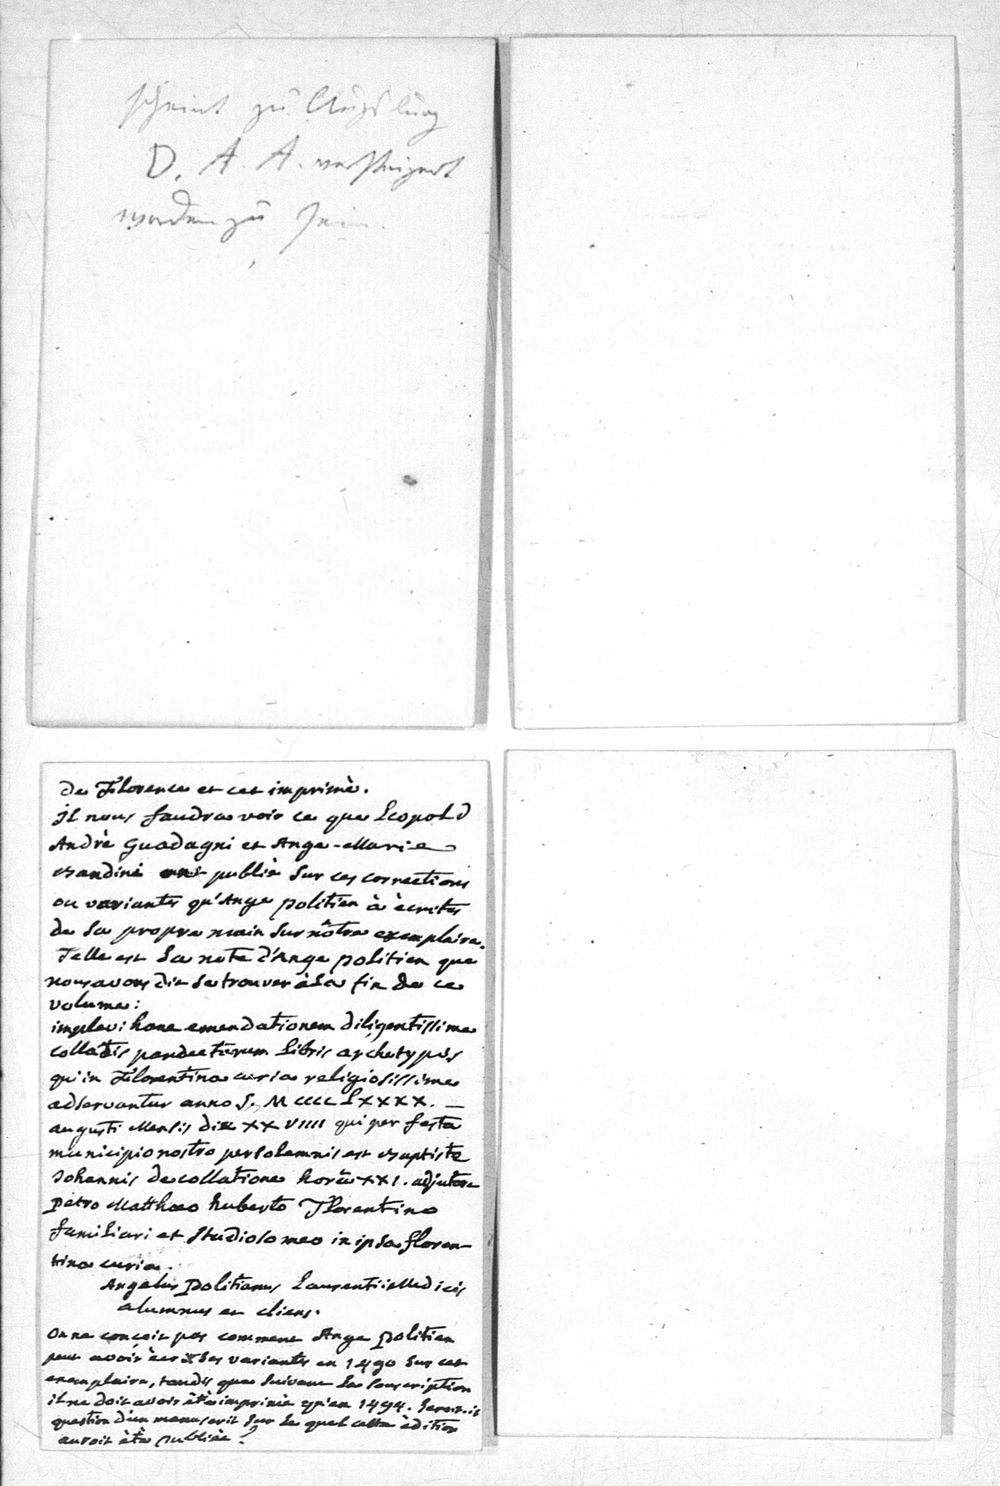 scheint zu Augsburg
D. A. A. versteigert
worden zu sein.
de Florence et cet imprimè.
il nous faudra voir ce que Leopold
Andrè Guadagni et Ange-Marie
Bandini ont publiè sur ces corrections
ou variantes qu'Ange politien à ècrites
de sa propre main sur nôtre exemplaire.
Telle est la note d'Ange politien que
nous avons dit se trouver à la fin de ce
volume:
implevi hanc emendationem diligentissime
collatis pandectarum libris archetypis
qui in Florentina curia religiosissime
adservantur anno S. M CCCC LXXXX.
augusti Mensis die XXVIIII qui per festa
municipio nostro persolemnis est Baptiste
Johannis decollatione horâ XXI. adjutore
petro Matthæo huberto Florentino
familiari et studioso meo in ipsa floren-
tina curia.
Angelus politianus Laurentii Medicis
alumnus et cliens.
On ne conçoit pas comment Ange politien
peut avoir ècrit ses variantes en 1490 sur cet
exemplaire, tandis que suivant la souscription
il ne doit avoir ètè imprimè qu'en 1494. Seroit-il
question d'un manuscrit sur le quel cette èdition
auroit ètè publièe?